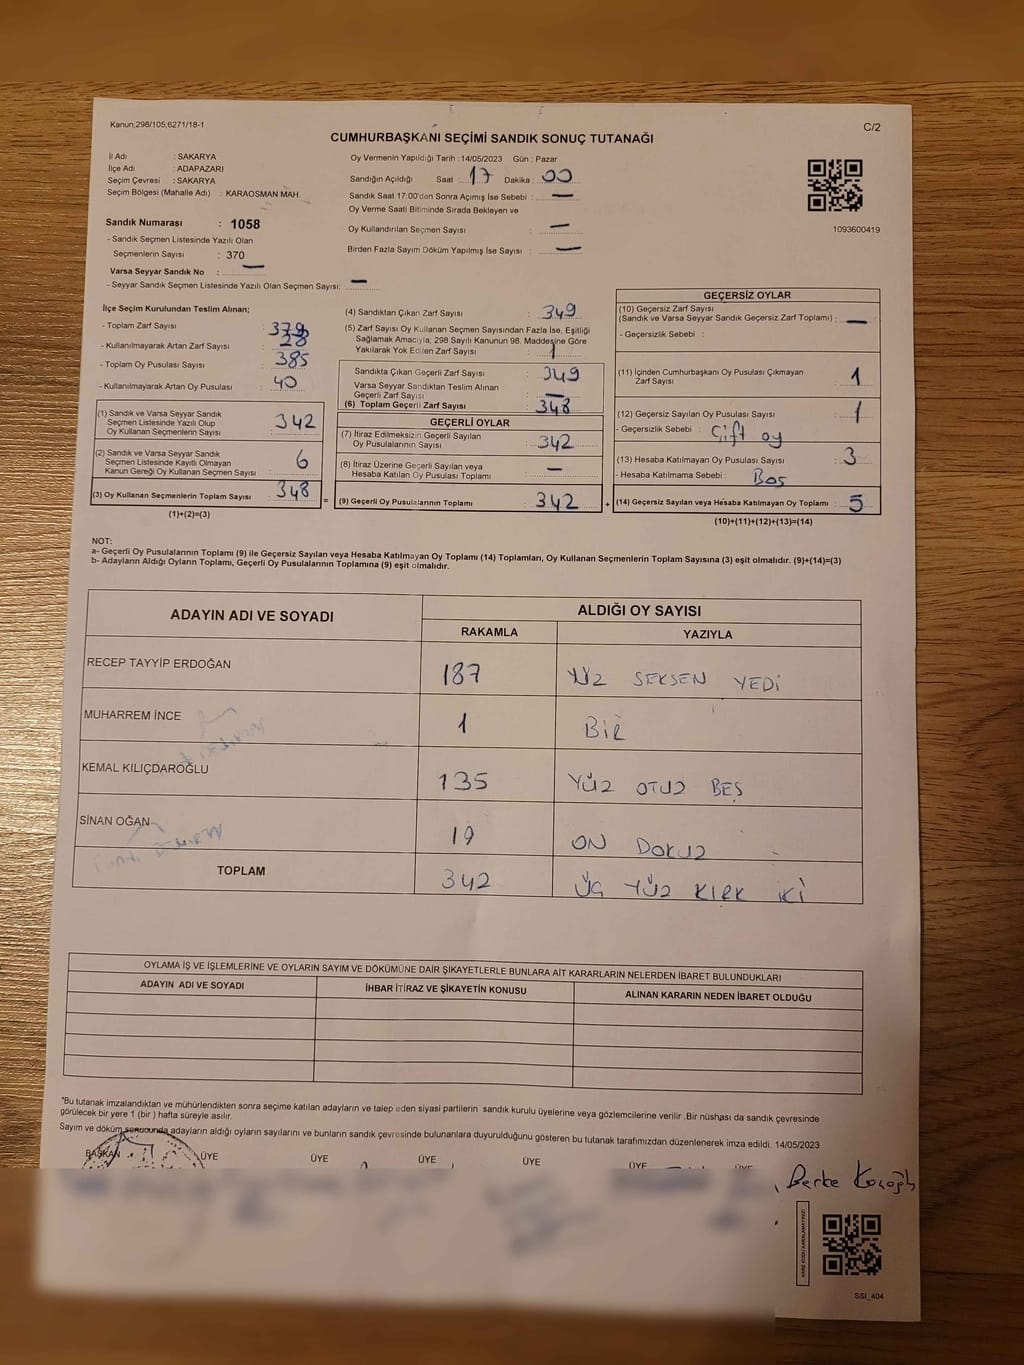 Kanun;298/105;6271/18-1
C/2
CUMHURBAŞKANI SEÇİMİ SANDIK SONUÇ TUTANAĞI
İl Adı : SAKARYA
İlçe Adı : ADAPAZARI
Seçim Çevresi : SAKARYA
Seçim Bölgesi (Mahalle Adı) : KARAOSMAN MAH.
Oy Vermenin Yapıldığı Tarih : 14/05/2023 Gün : Pazar
Sandığın Açıldığı Saat : 17 Dakika : 00
Sandık Saat 17:00'den Sonra Açımış İse Sebebi : —
Oy Verme Saati Bitiminde Sırada Bekleyen ve
Oy Kullandırılan Seçmen Sayısı : —
Birden Fazla Sayım Döküm Yapılmış İse Sayısı : —
1093600419
Sandık Numarası : 1058
- Sandık Seçmen Listesinde Yazılı Olan
Seçmenlerin Sayısı : 370
Varsa Seyyar Sandık No : —
- Seyyar Sandık Seçmen Listesinde Yazılı Olan Seçmen Sayısı: —
İlçe Seçim Kurulundan Teslim Alınan;
- Toplam Zarf Sayısı :
- Kullanılmayarak Artan Zarf Sayısı : 28
- Toplam Oy Pusulası Sayısı : 385
- Kullanılmayarak Artan Oy Pusulası : 40
(1) Sandık ve Varsa Seyyar Sandık
Seçmen Listesinde Yazılı Olup
Oy Kullanan Seçmenlerin Sayısı : 342
(2) Sandık ve Varsa Seyyar Sandık
Seçmen Listesinde Kayıtlı Olmayan
Kanun Gereği Oy Kullanan Seçmen Sayısı : 6
(3) Oy Kullanan Seçmenlerin Toplam Sayısı : 348
(1)+(2)=(3)
=
(4) Sandıktan Çıkan Zarf Sayısı : 349
(5) Zarf Sayısı Oy Kullanan Seçmen Sayısından Fazla İse, Eşitliği
Sağlamak Amacıyla; 298 Sayılı Kanunun 98. Maddesine Göre
Yakılarak Yok Edilen Zarf Sayısı : 1
Sandıkta Çıkan Geçerli Zarf Sayısı : 349
Varsa Seyyar Sandıktan Teslim Alınan
Geçerli Zarf Sayısı : —
(6) Toplam Geçerli Zarf Sayısı : 348
GEÇERLİ OYLAR
(7) İtiraz Edilmeksizin Geçerli Sayılan
Oy Pusulalarının Sayısı : 342
(8) İtiraz Üzerine Geçerli Sayılan veya
Hesaba Katılan Oy Pusulası Toplamı : —
(9) Geçerli Oy Pusulalarının Toplamı : 342
+
GEÇERSİZ OYLAR
(10) Geçersiz Zarf Sayısı
(Sandık ve Varsa Seyyar Sandık Geçersiz Zarf Toplamı) : —
- Geçersizlik Sebebi :
(11) İçinden Cumhurbaşkanı Oy Pusulası Çıkmayan
Zarf Sayısı : 1
(12) Geçersiz Sayılan Oy Pusulası Sayısı : 1
- Geçersizlik Sebebi : Çift oy
(13) Hesaba Katılmayan Oy Pusulası Sayısı : 3
- Hesaba Katılmama Sebebi : Boş
(14) Geçersiz Sayılan veya Hesaba Katılmayan Oy Toplamı : 5
(10)+(11)+(12)+(13)=(14)
NOT:
a- Geçerli Oy Pusulalarının Toplamı (9) ile Geçersiz Sayılan veya Hesaba Katılmayan Oy Toplamı (14) Toplamları, Oy Kullanan Seçmenlerin Toplam Sayısına (3) eşit olmalıdır. (9)+(14)=(3)
b- Adayların Aldığı Oyların Toplamı, Geçerli Oy Pusulalarının Toplamına (9) eşit olmalıdır.
ADAYIN ADI VE SOYADI
ALDIĞI OY SAYISI
RAKAMLA YAZIYLA
RECEP TAYYİP ERDOĞAN 187 YÜZ SEKSEN YEDİ
MUHARREM İNCE 1 BİR
KEMAL KILIÇDAROĞLU 135 YÜZ OTUZ BEŞ
SİNAN OĞAN 19 ON DOKUZ
TOPLAM 342 ÜÇ YÜZ KIRK İKİ
OYLAMA İŞ VE İŞLEMLERİNE VE OYLARIN SAYIM VE DÖKÜMÜNE DAİR ŞİKAYETLERLE BUNLARA AİT KARARLARIN NELERDEN İBARET BULUNDUKLARI
ADAYIN ADI VE SOYADI İHBAR İTİRAZ VE ŞİKAYETİN KONUSU ALINAN KARARIN NEDEN İBARET OLDUĞU
"Bu tutanak imzalandıktan ve mühürlendikten sonra seçime katılan adayların ve talep eden siyasi partilerin sandık kurulu üyelerine veya gözlemcilerine verilir .Bir nüshası da sandık çevresinde
görülecek bir yere 1 (bir ) hafta süreyle asılır.
Sayım ve döküm sonucunda adayların aldığı oyların sayılarını ve bunların sandık çevresinde bulunanlara duyurulduğunu gösteren bu tutanak tarafımızdan düzenlenerek imza edildi. 14/05/2023
BAŞKAN ÜYE ÜYE ÜYE ÜYE ÜYE ÜYE
Berke
KARE KODU KARALAMAYINIZ!
SSI_404